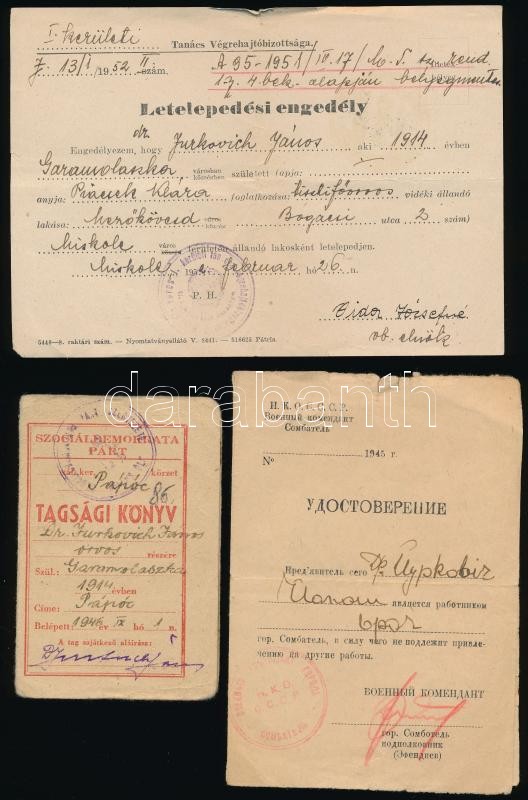 I. kerületi Tanács Végrehajtóbizottsága.
13/1952 II szám.
A 95-1951/IV.17/M.T. sz. rend.
17. § 4. bek. alapján bélyegmentes
Letelepedési engedély
dr.
Engedélyezem, hogy Jurkovich János aki 1914 évben
Garamolaszka városban községben született (apja:
anyja: Piacsek Klára foglalkozása: tisztifőorvos vidéki állandó
lakása: Mezőkövesd város község Bogácsi utca 2 szám)
Miskolc város község területén állandó lakosként letelepedjen.
Miskolc, 1952. február hó 26. n.
P. H.
Zidor Józsefné
vb. elnök
5440—8. raktári szám. — Nyomtatványellátó V. 8441. — 518625 Pátria.
SZOCIÁLDEMOKRATA
PÁRT
vár. ker. körzet
Pápóc
86.
TAGSÁGI KÖNYV
Dr. Jurkovich János
orvos részére
Szül.: Garamolaszka
1914 évben
Címe: Pápóc
Belépett: 1945 év IX hó 1 n.
A tag sajátkezű aláírása:
Н. К. О. С. С. С. Р.
Военный комендант
Сомбатель
№ 1945 г.
УДОСТОВЕРЕНИЕ
Пред'явитель сего Др Юркович
Яанош является работником
врач
гор. Сомбатель, в силу чего не подлежит привле-
чению на другие работы.
ВОЕННЫЙ КОМЕНДАНТ
гор. Сомботель
подполковник
(Эфендиев)
Н. К. О.
С. С. С. Р.
darabanth